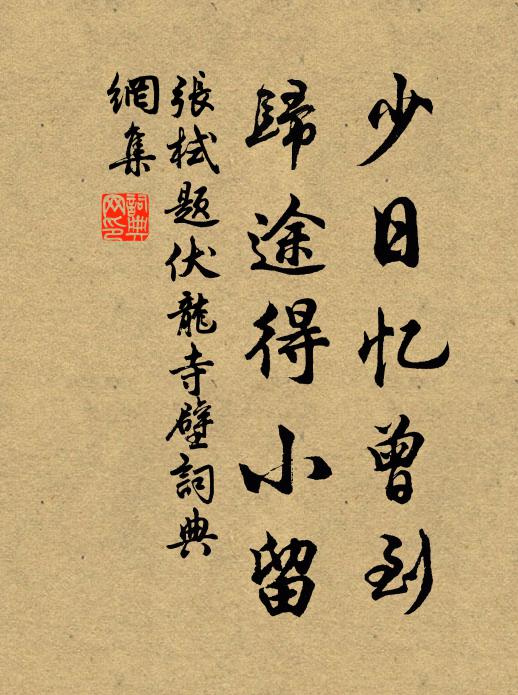 少日忆曾到
歸途得小留
張栻题伏龍寺壁詞典
網集
詞典
网印